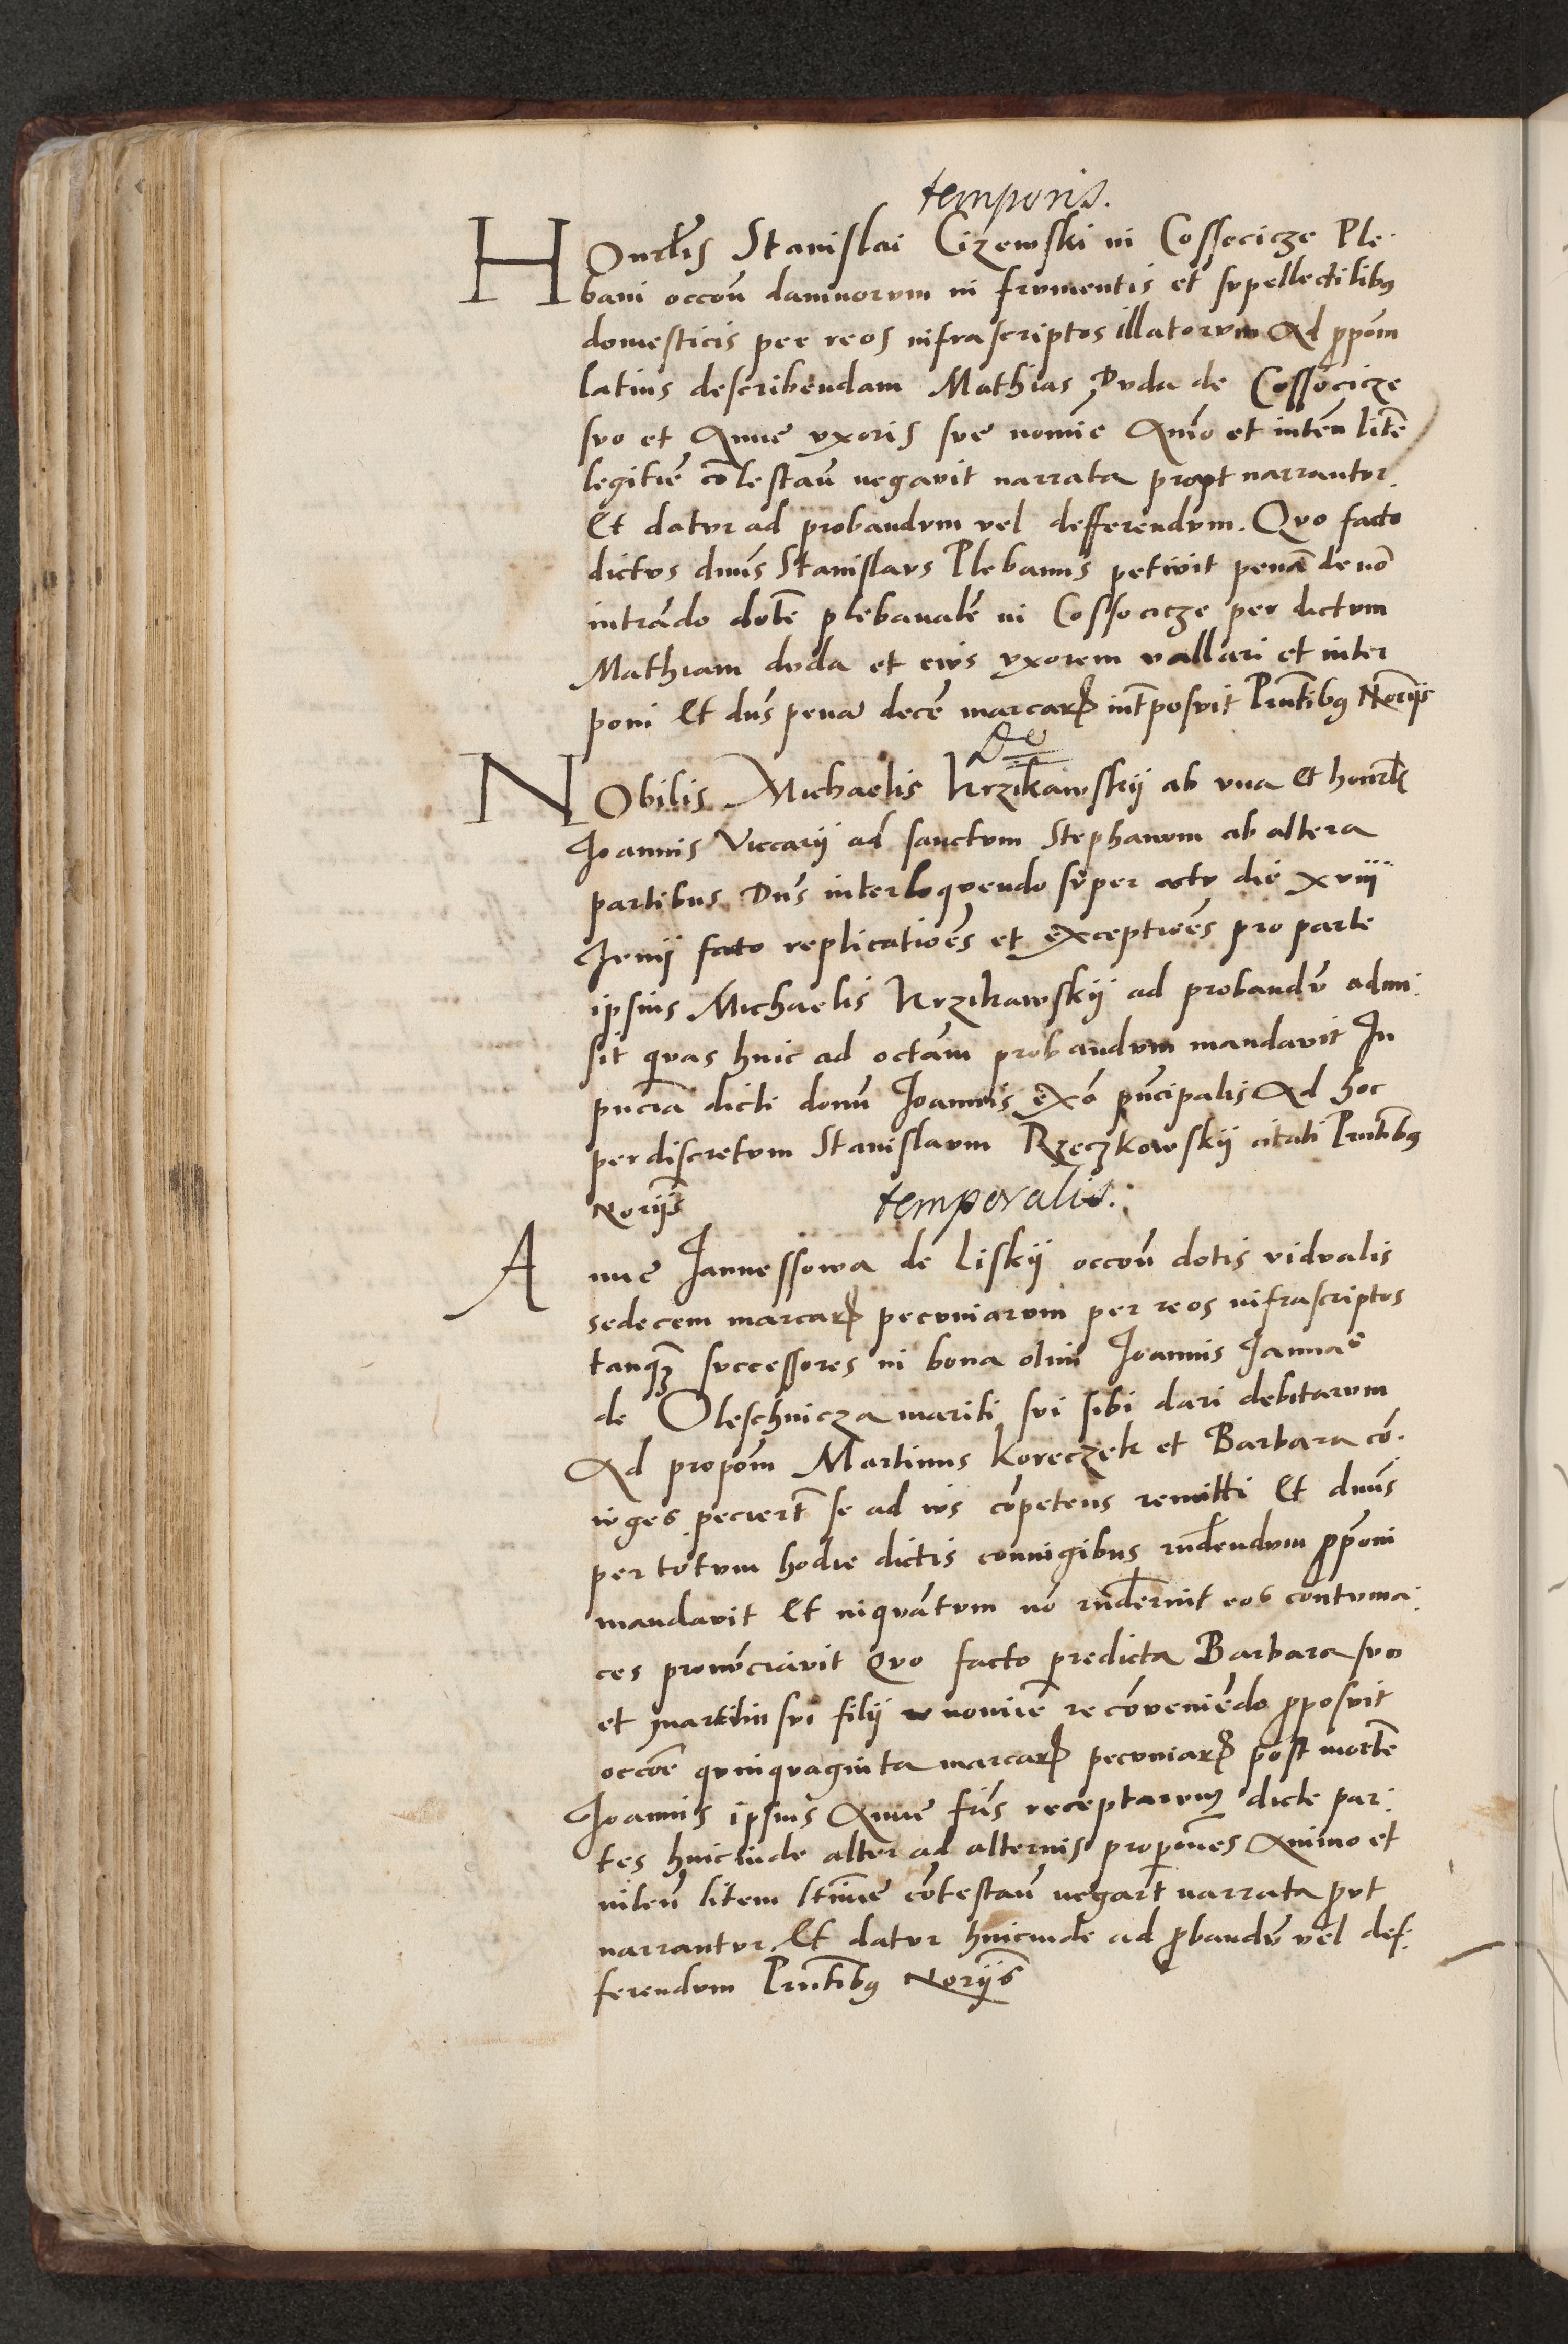 temporis.
HOnrlis Stanislai Cizewski in Cossocicze Ple-
bani occon damnorum in frumentis et supellectilibus
domesticis per reos infrascriptos illatorum Ad ppom
latius describendam Mathias Duda de Cossocicze
suo et Anne uxoris sue nomie Animo et inten lite
legitie cotestan negavit narrata prout narrantur.
Et datur ad probandum vel defferendum. Quo facto
dictus dnus Stanislaus Plebanus petivit pena de no
intrado dote plebanale in Cossocicze per dictum
Mathiam duda et eius uxorem vallari et inter
poni Et dns pena dece marcarꝝ intposuit Pntibus Noriis
De
NObilis Michaelis Krzikawskij ab una Et honrlis
Joannis Viccarij ad sanctum Stephanum ab altera
partibus Dns interloquendo super actu die xviij
Junij facto replicatioes et exceptioes pro parte
ipsius Michaelis Krzikawskij ad probandu admi-
sit quas huic ad octam probandum mandavit In
pncia dicti domi Joannis exo pncipalis Ad hoc
per discretum Stanislaum Rzeczkowskij citati Pntibus
Noriis
temporalis.
Anne Jannessowa de Liskij occon dotis vidualis
sedecem marcarꝝ pecuniarum per reos infrascriptos
tanqꝫ successores in bona olim Joannis Jannas
de Oleschnicza mariti sui sibi dari debitarum
Ad propom Martinus Koreczek et Barbara co-
iuges peciert se ad ius copetens remitti Et dnus
per totum hodie dictis coniugibus rndendum pponi
mandavit Et inquantum no rnderint eos contuma-
ces pronuciavit Quo facto predicta Barbara suo
et martini sui filij nomine reconveniedo pposuit
occoe quinquaginta marcarꝝ pecuniarꝝ post morte
Joannis ipsius Anne fris receptarum dicte par-
tes hincinde alter ad alternis propones Animo et
inten litem ltime cotestan negart narrata prout
narrantur. Et datur hincinde ad pbandu vel def-
ferendum Pntibus Noriis